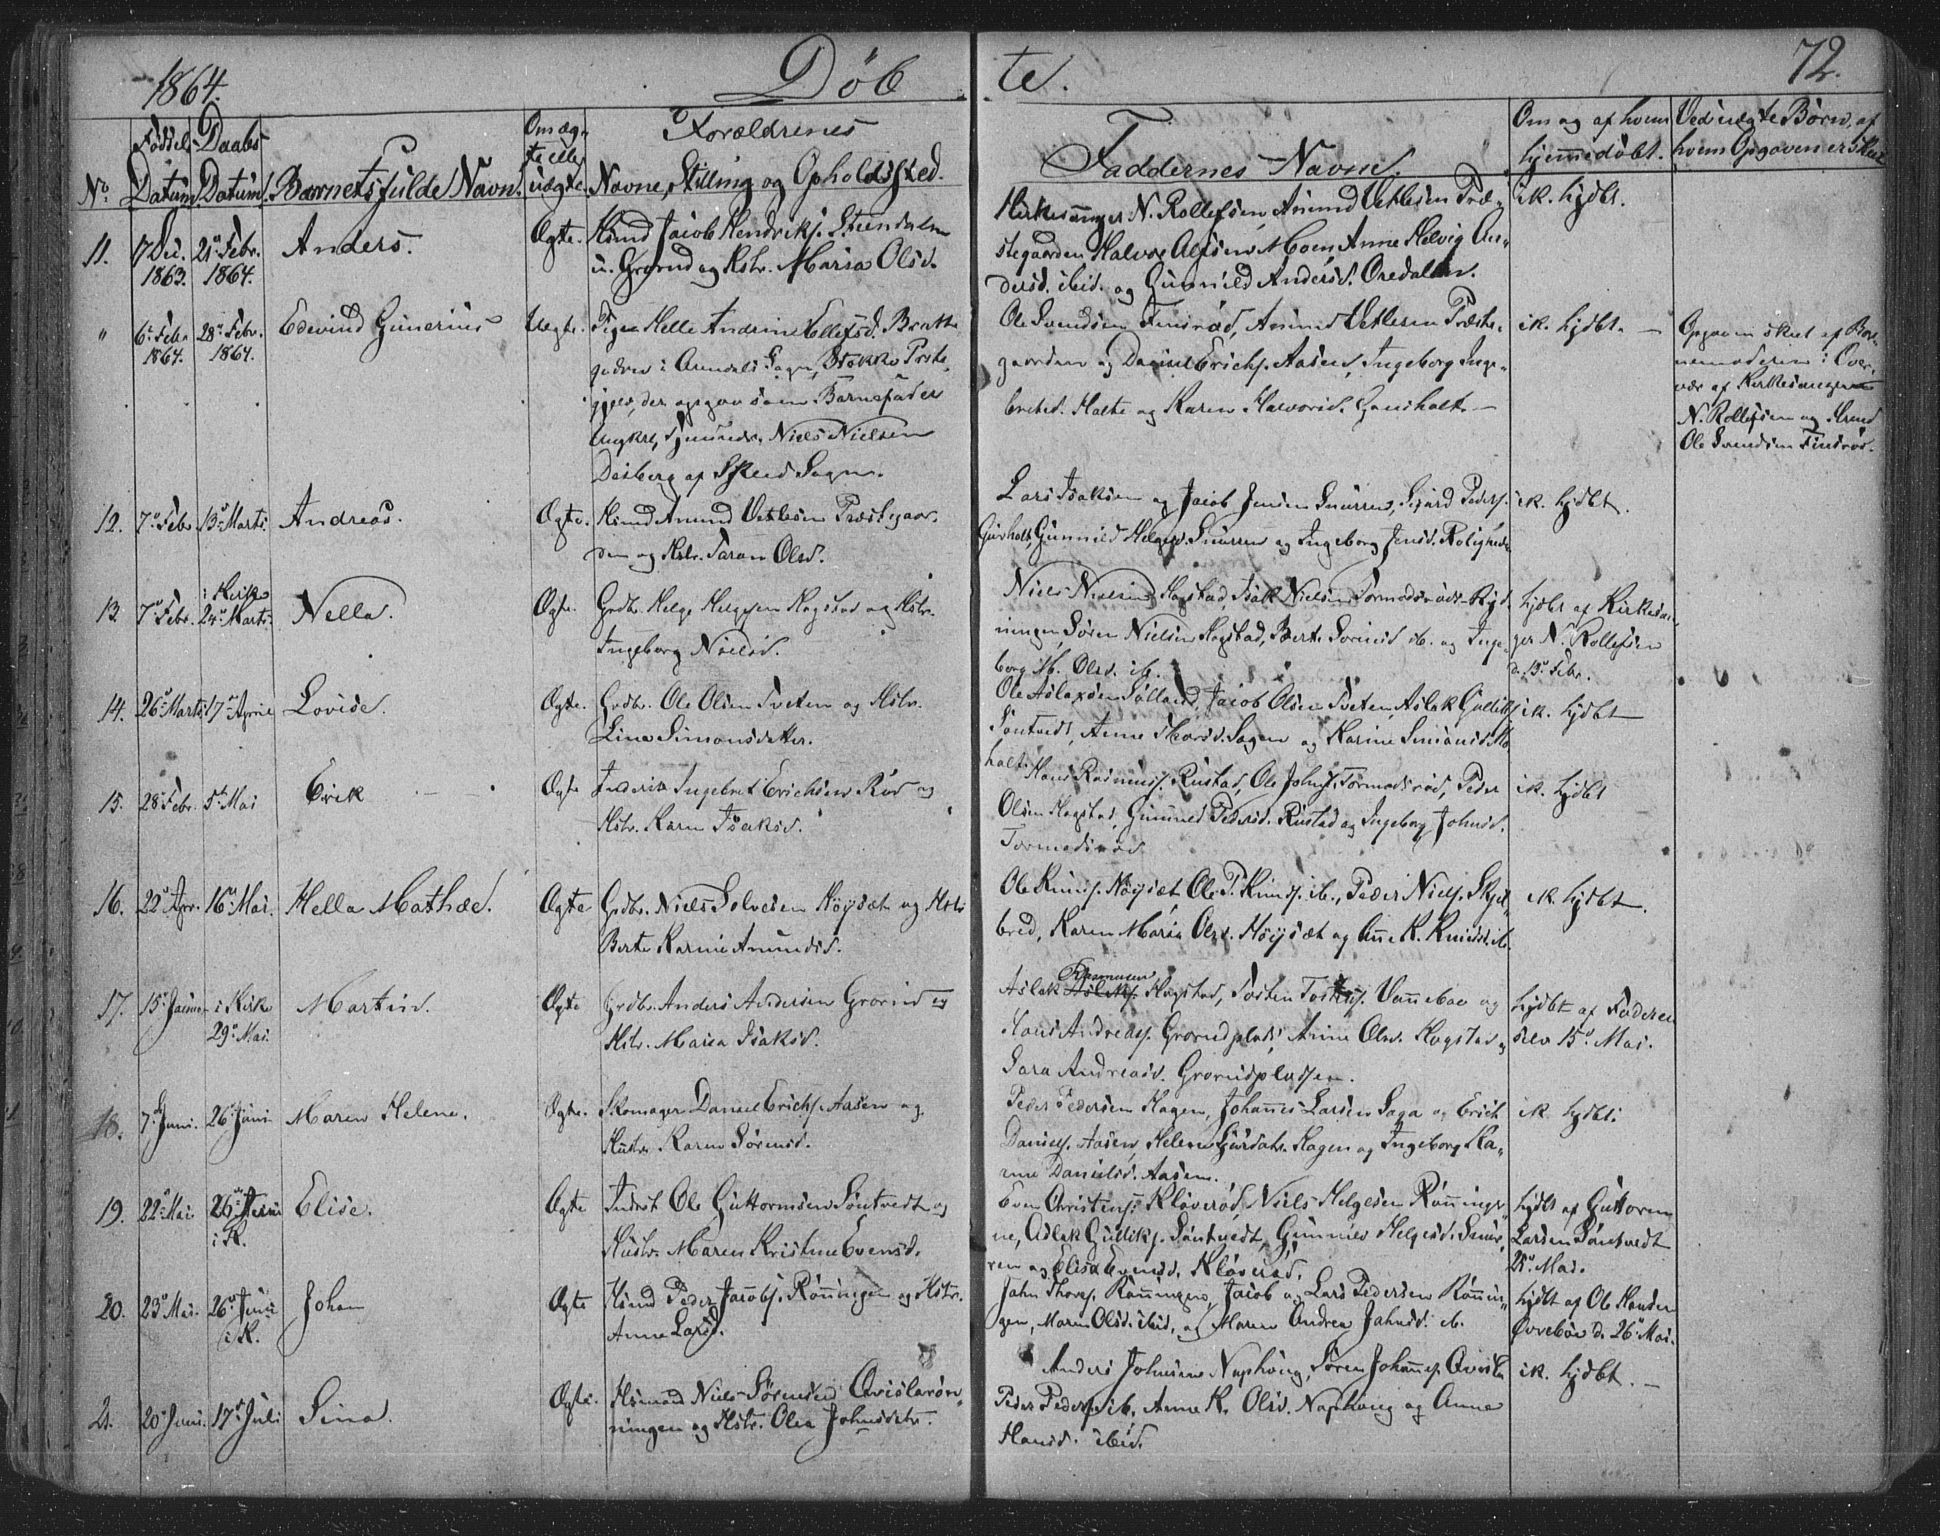 1864.
Døb
te.
72.
No
Fødsels Datum.
Daabs Datum.
Barnets fulde Navn.
Om ægte eller uægte.
Forældrenes
Navne, Stilling og Opholdssted.
Faddernes Navne.
Om og af hvem
hjemmedøbt.
Ved uægte Børn, af
hvem Opgaven er skeet
11.
7 Dec.
1863.
21 Febr.
1864.
Anders.
Ægte.
Hsmd Jacob Hendriks.
u. Grorud og Hstr. Maria Olsd.
Kirkesanger N. Rollefsen, Amund Vetlesen Præ-
stegaarden Halvor Alfsen Moen, Anne Helvig An-
dersd. ibid. og Gunnild Andersd. Oredalen.
ik. hjdbt.
"
6 Febr
1864.
28 Febr.
1864.
Edevind Gunerius
Uegte.
Pige Helle Andrine Ellefsd.
i Arendals Sogn,
der opgav som Barnefader
Ungkrl, Niels Nielsen
af Skeid Sogn.
Ole Svendsen Finsrød, Amund Vetlesen Præste-
gaarden og Daniel Erichs. Aasen, Ingeborg Inge-
bretsd. Holte og Karen Halvorsd. Gausholt.
ik. hjdbt.
Opgaven skeet af Bar-
nemoderen i Over-
vær af Kirkesangeren
N. Rollefsen og Hsmd
Ole Svendsen Finsrød.
12.
7 Febr
13 Marts.
Andreas.
Ægte.
Hsmd Amund Vetlesen Præstegaar-
den og Hstr. Taran Olsd.
Lars Isaksen og Jacob Jensen Snurren, Sigurd Peders.
Gurholt, Gunnild Helgesd. Snurren og Ingeborg Jensd. Roligheden
ik. hjdbt.
13.
7 Febr.
i Kirke
24 Marts.
Nella.
Ægte.
Grdbr. Helge Helgesen Hogstad og Hstr.
Ingeborg Nielsd.
Niels Nielsen Hogstad, Isak Nielsen Tormodsrød-
ningen, Søren Nielsen Hogstad, Berte Sørensd. ib. og Inge-
borg M. Olsd. ib.
hjdbt af Kirkesan-
ger N. Rollefsen
d. 13 Febr.
14.
26 Marts
17 April
Lovise.
Ægte.
Grdbr. Ole Olsen Tveten og Hstr.
Lina Simonsdatter.
Ole Aslaksen Sølland, Jacob Olsen Tveten, Aslak Gulliks.
Søntvedt, Anne Thorsd. Sagen og Karine Simonsd. Mo
holt.
ik. hjdbt
15.
28 Febr.
5 Mai
Erik
Ægte
Inderst Ingebret Erichsen Rød og
Hstr. Karen Isaksd.
Hans Rasmuss. Rustad, Ole Johns. Tormodsrød, Peder
Olsen Hogstad, Gunnild Pedersd. Rustad og Ingeborg Johnsd.
Tormodsrød
ik. hjdbt
16.
22 Apr.
16 Mai.
Hella Mathæa.
Ægte
Grdbr. Niels Solvesen Høysæt og Hstr
Berte Karine Amundsd.
Ole Knuds. Høysæt, Ole P. Knuds. ib., Peder Niels. Skjel-
bred, Karen Maria Olsd. Høysæt og Anne K. Knudsd. ib.
ik. hjdbt.
17.
15 Januar
i Kirke
29 Mai.
Martin.
Ægte
Grdbr. Anders Andersen Grorud og
Hstr. Maria Isaksd.
Rasmusen
Aslak Hogstad, Tosten Tostens. Vannebo og
Hans Andreas. Grorudplads, Anne Olsd. Hogstad og
Sara Andreasd. Grorudpladsen.
hjdbt af Faderen
selv 15 Mai.
18.
7 Juni.
26 Juni
Maren Helene.
Ægte.
Skomager Daniel Erichs. Aasen og
Hustr. Karen Sørensd.
Peder Pedersen Hagen, Johannes Larsen Saga og Erich
Daniels. Aasen, Helene Hagen og Ingeborg Ka-
rine Danielsd. Aasen.
ik. hjdbt.
19.
22 Mai
26 Juni
i K.
Elise.
Ægte
Inderst Ole Guttormsen Søntvedt og
Hustr. Maren Kristine Evensd.
Even Christens. Kløverød, Niels Helgesen Rønninge-
ne, Aslak Gulliks. Søntvedt, Gunnild Helgesd. Snur-
ren og Elise Evensd. Kløverød.
hjdbt af Guttorm
Larsen Søntvedt
25 Mai.
20.
23 Mai.
26 Juni
i K.
Johan
Ægte
Hsmd Peder Jacobs. Rønningen og Hstr.
Anne Larsd.
John Thors. Rønningen, Jacob og Lars Pedersen Rønnin-
gen, Maren Olsd. ibid, og Maren Andrea Johnsd. ib.
hjdbt af Ole Hansen
Øvrebøe d. 26 Mai.
21.
20 Juni.
17 Juli
Sina.
Ægte.
Husmand Niels Sørensen Qvislarøn-
ningen og Hstr. Olea Johnsdatr.
Anders Johnsen Naphoug, Søren Johans. Qvisla
Peder Peders. ib. Anne K. Olsd. Naphoug og Anne
Hansd. ibid.
ik. hjdbt.